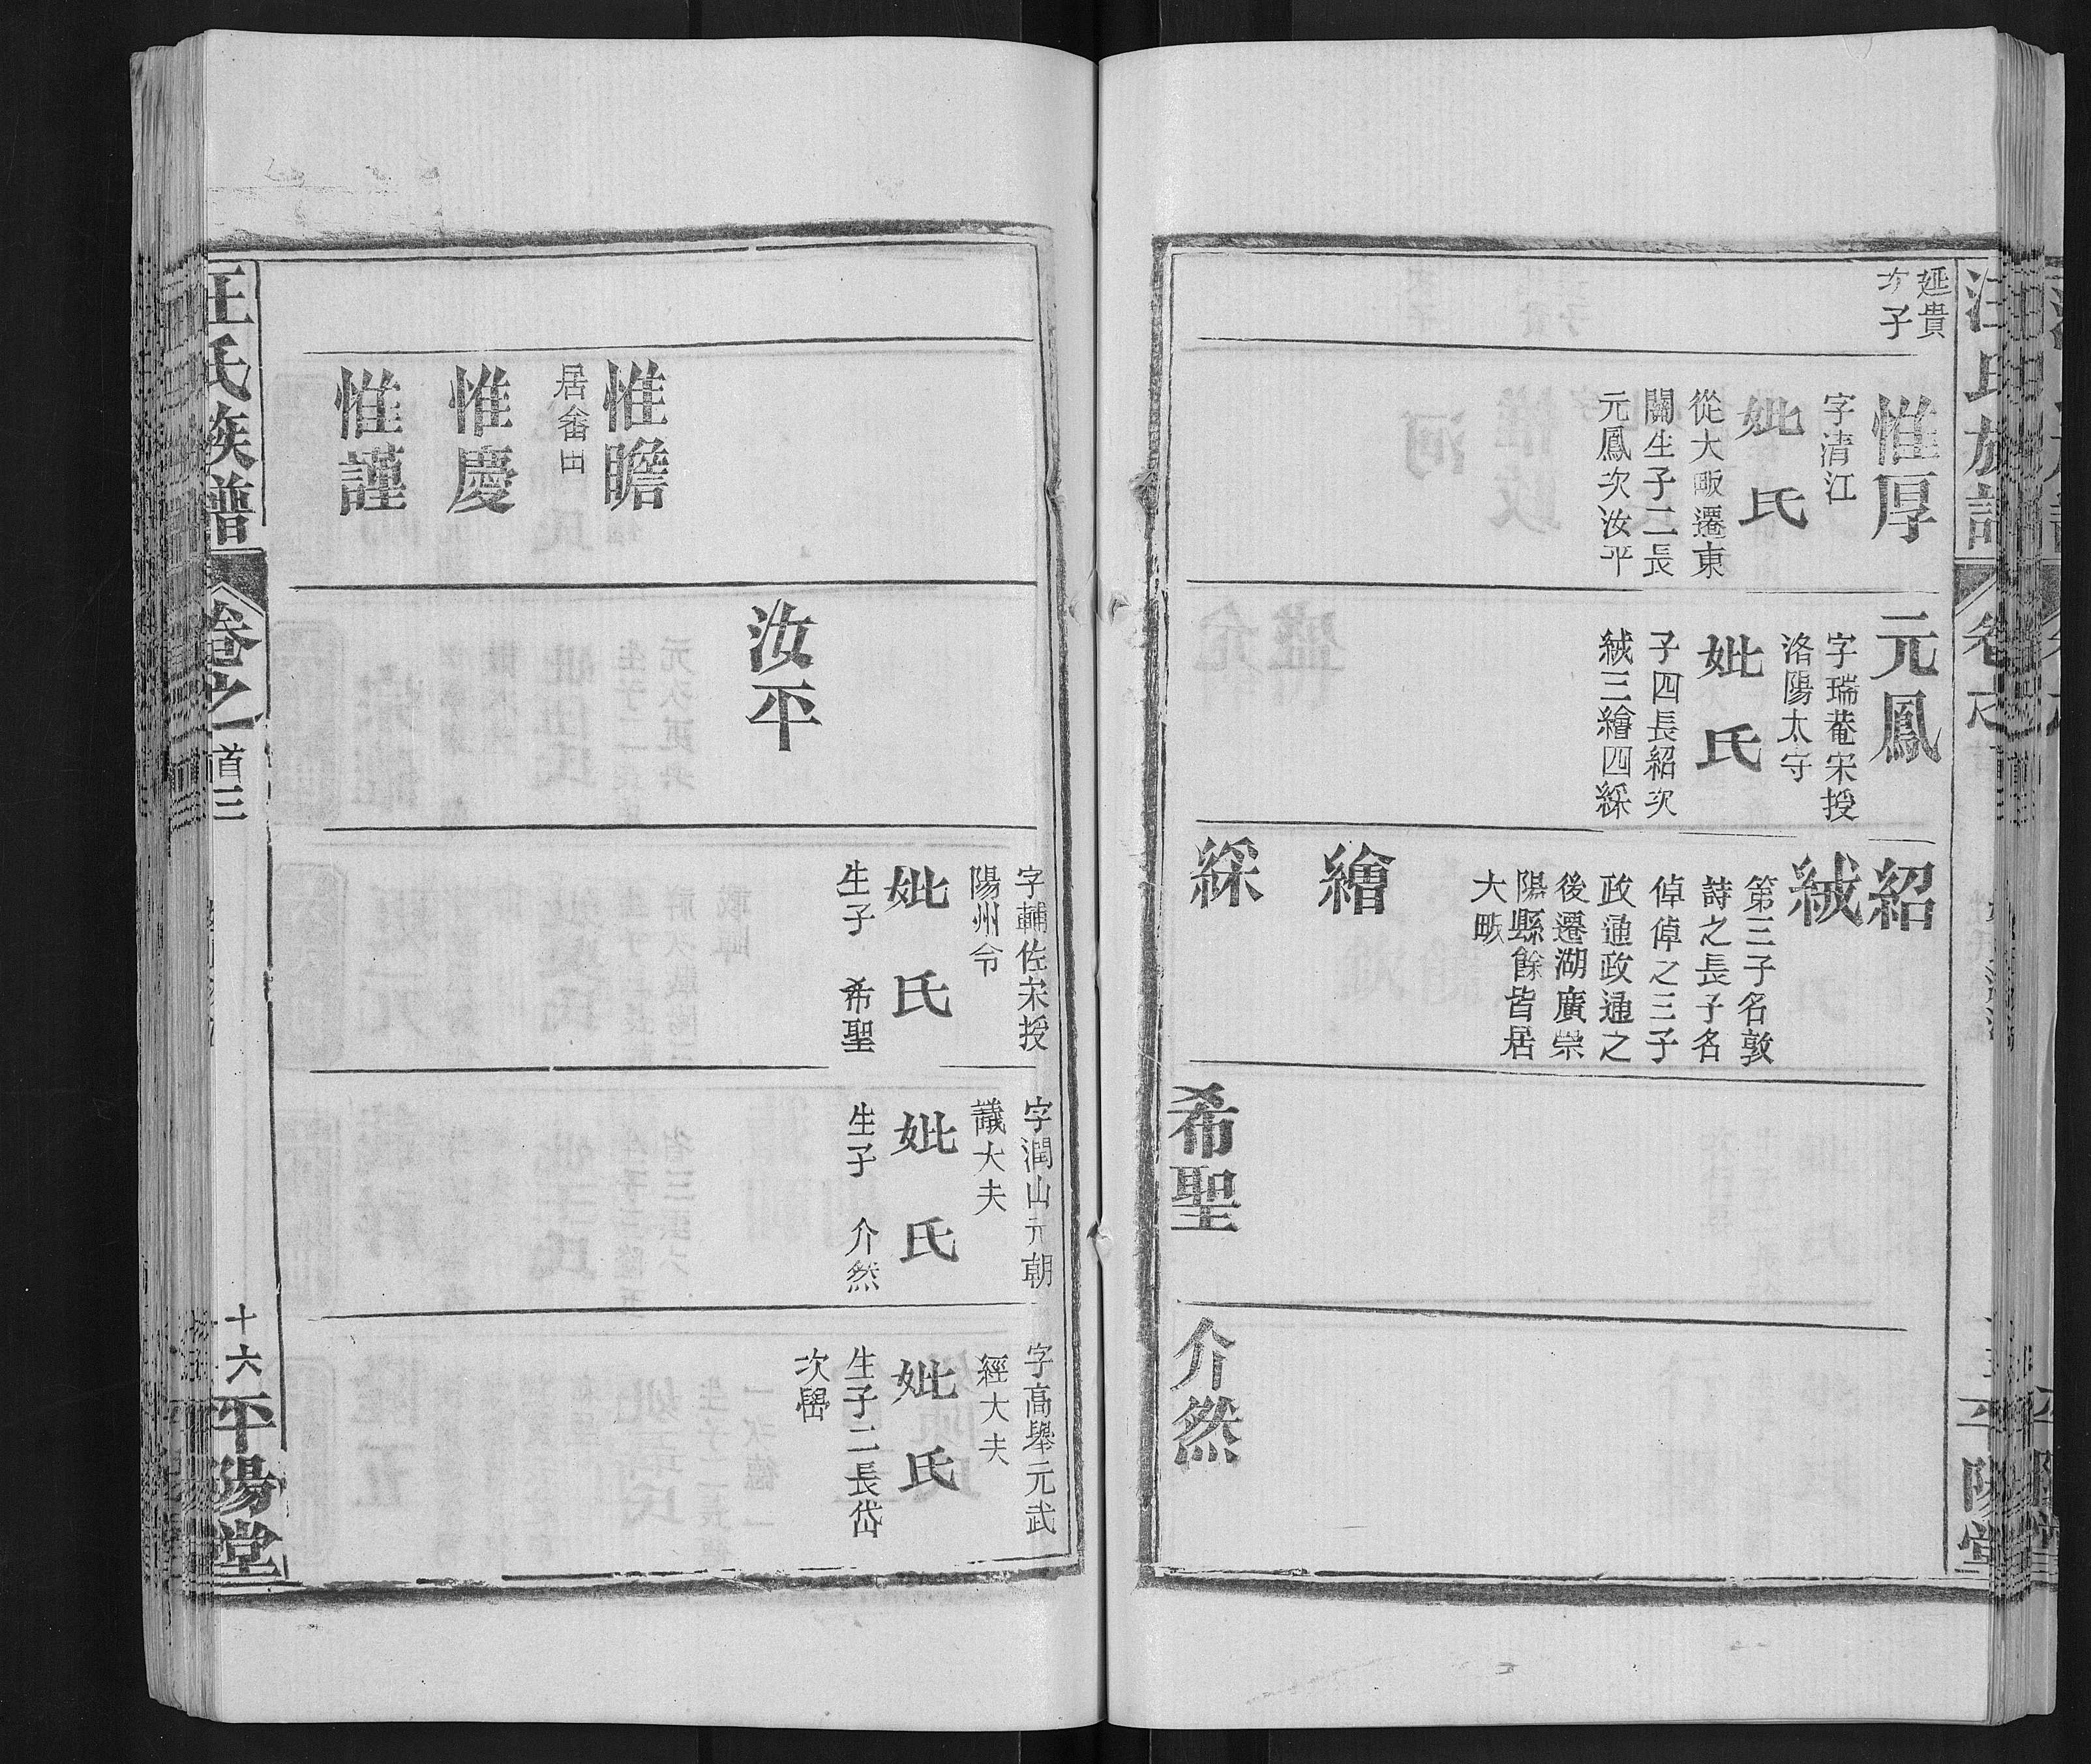 延貴
次子
惟厚
字清江
妣氏
從大畈遷東
關生子二長
元鳳次汝平
元鳳
字瑞菴宋授
洛陽太守
妣氏
子四長紹次
絨三繪四綵
紹
絨
第三子名敦
詩之長子名
倬倬之三子
政通政通之
後遷湖廣崇
陽縣餘皆居
大畈
繪
綵
希聖
介然
平陽堂
惟瞻
居畬田
惟慶
惟謹
汝平
字輔佐宋授
陽州令
妣氏
生子 希聖
字潤山元朝
議大夫
妣氏
生子 介然
字高舉元武
經大夫
妣氏
生子二長岱
次嶨
汪氏族譜
卷之
首三
十六
平陽堂